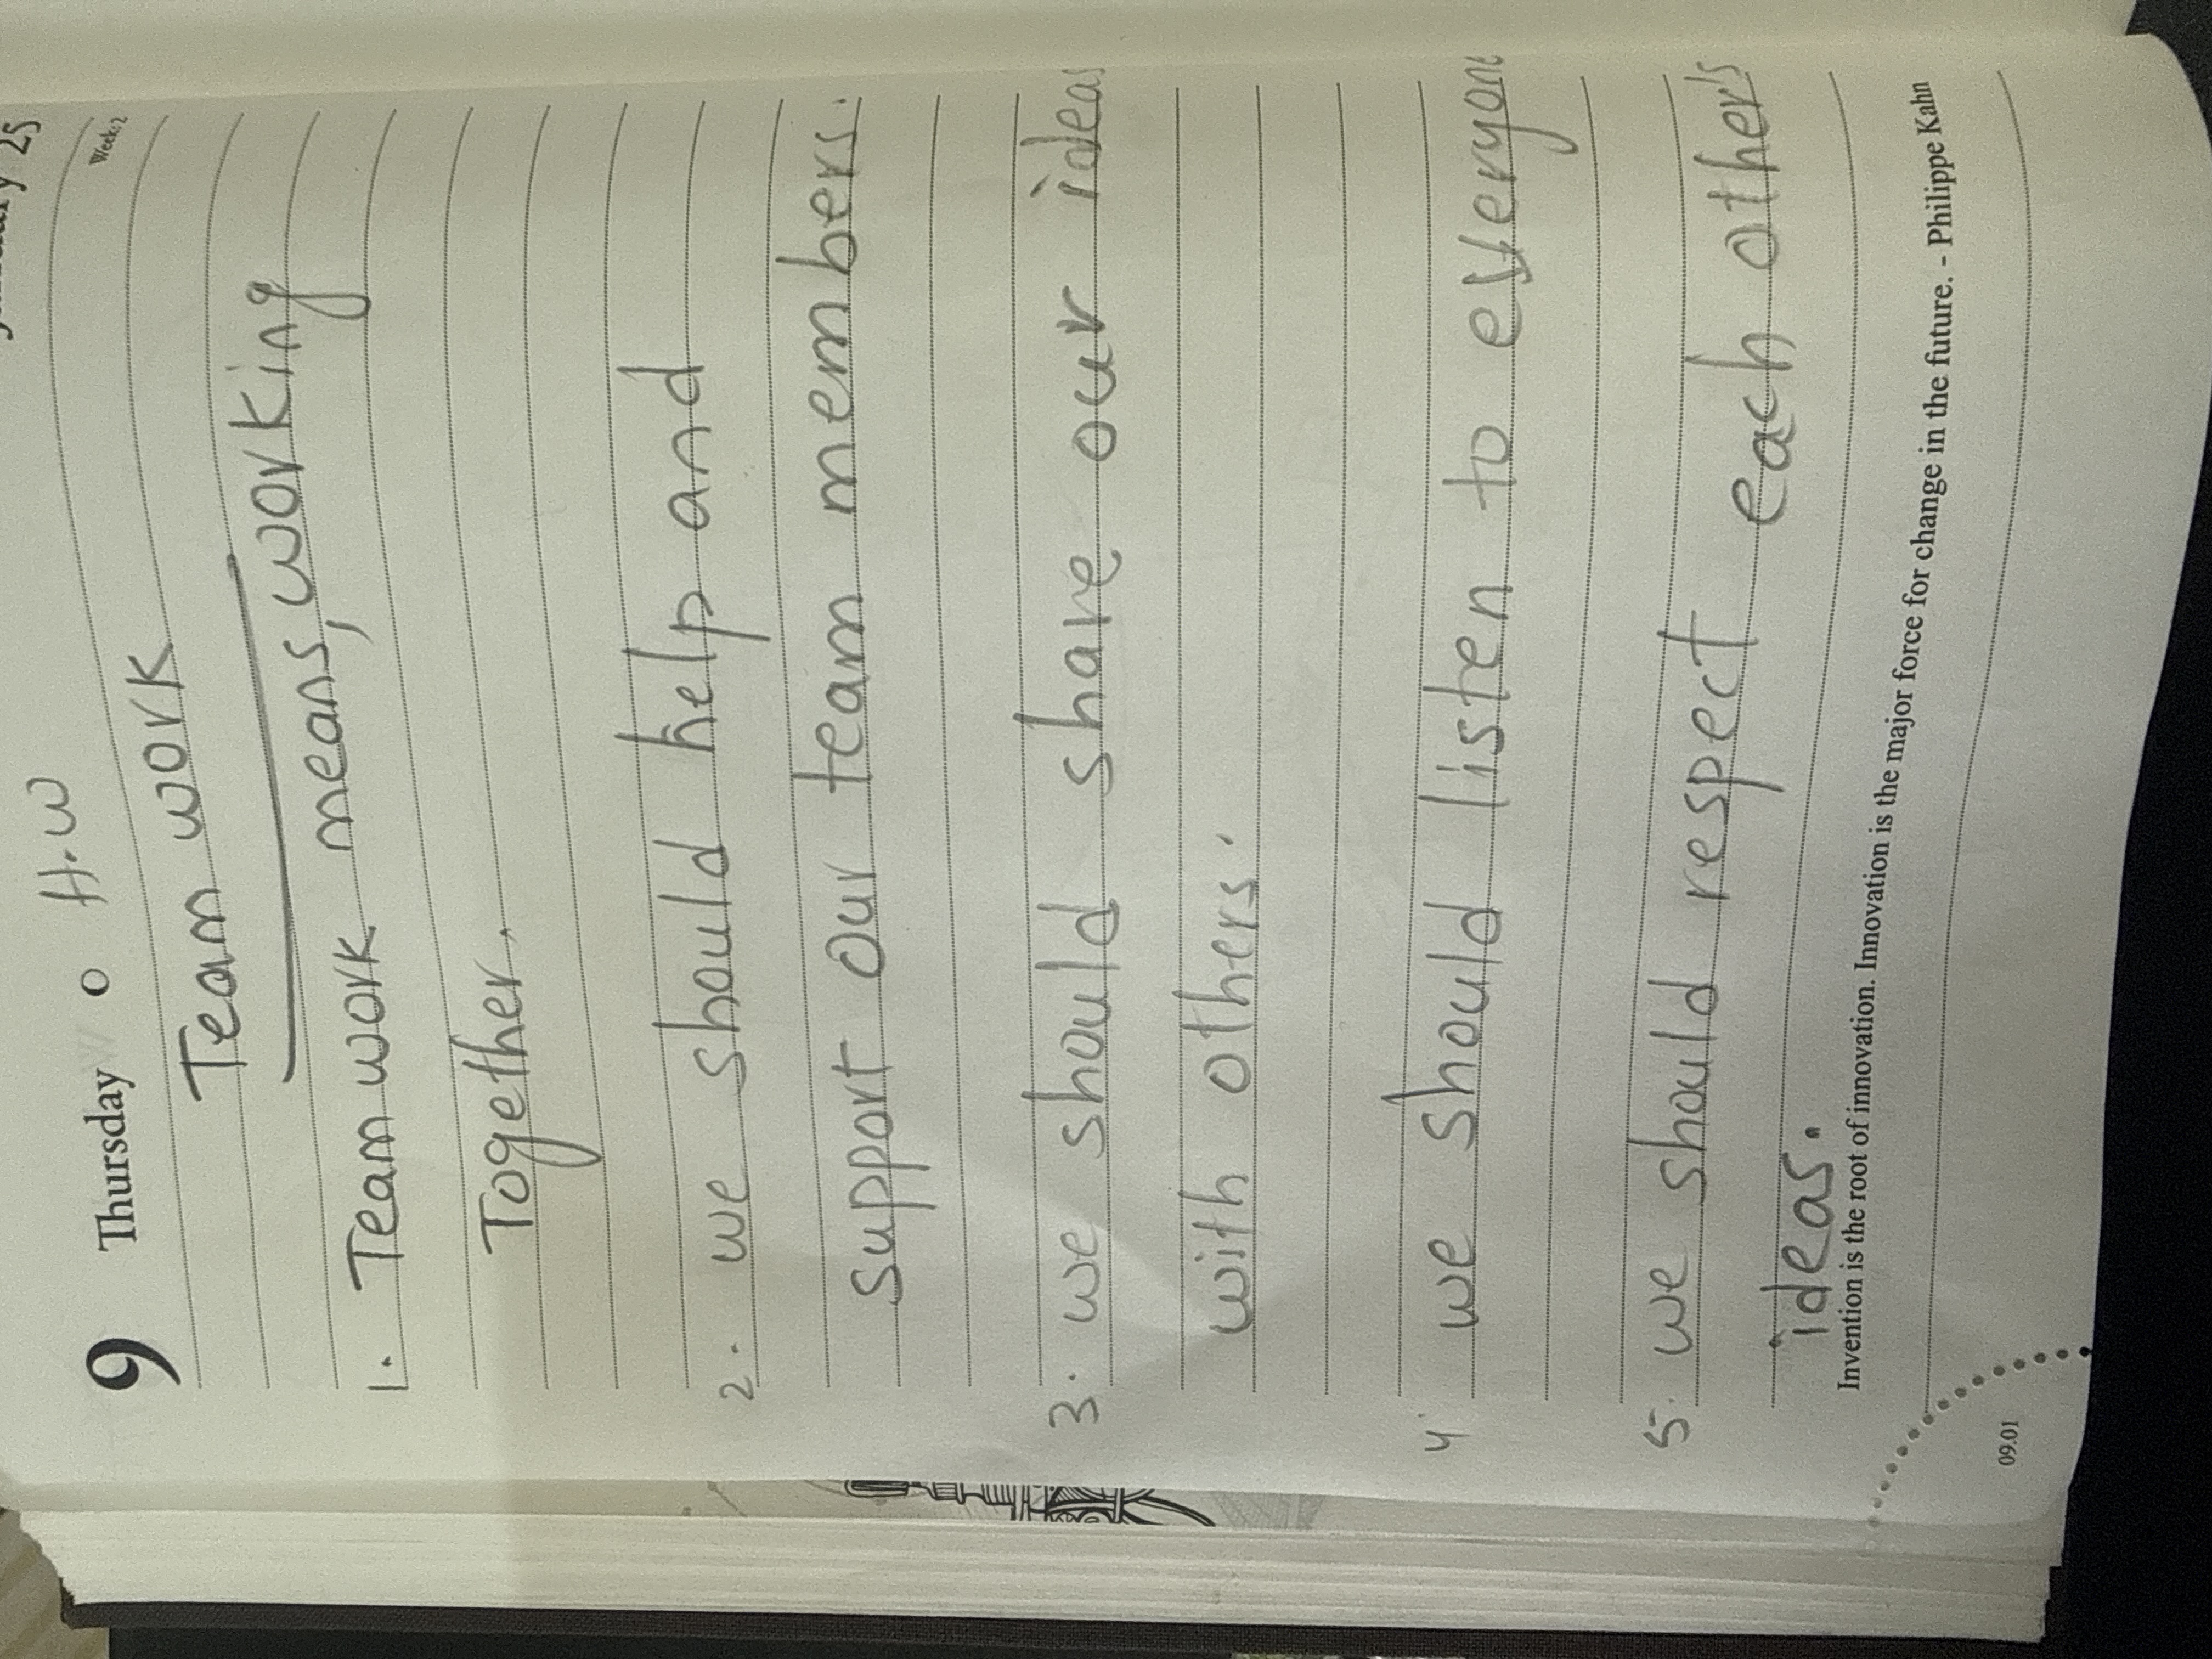 9 Thursday o H.W
Week:2
Team work
1. Team work means, working
Together.
2. we should help and
support our team members.
3. we should share our ideas
with others.
4. we should listen to everyone
5. we should respect each other's
ideas.
Invention is the root of innovation. Innovation is the major force for change in the future. - Philippe Kahn
09.01